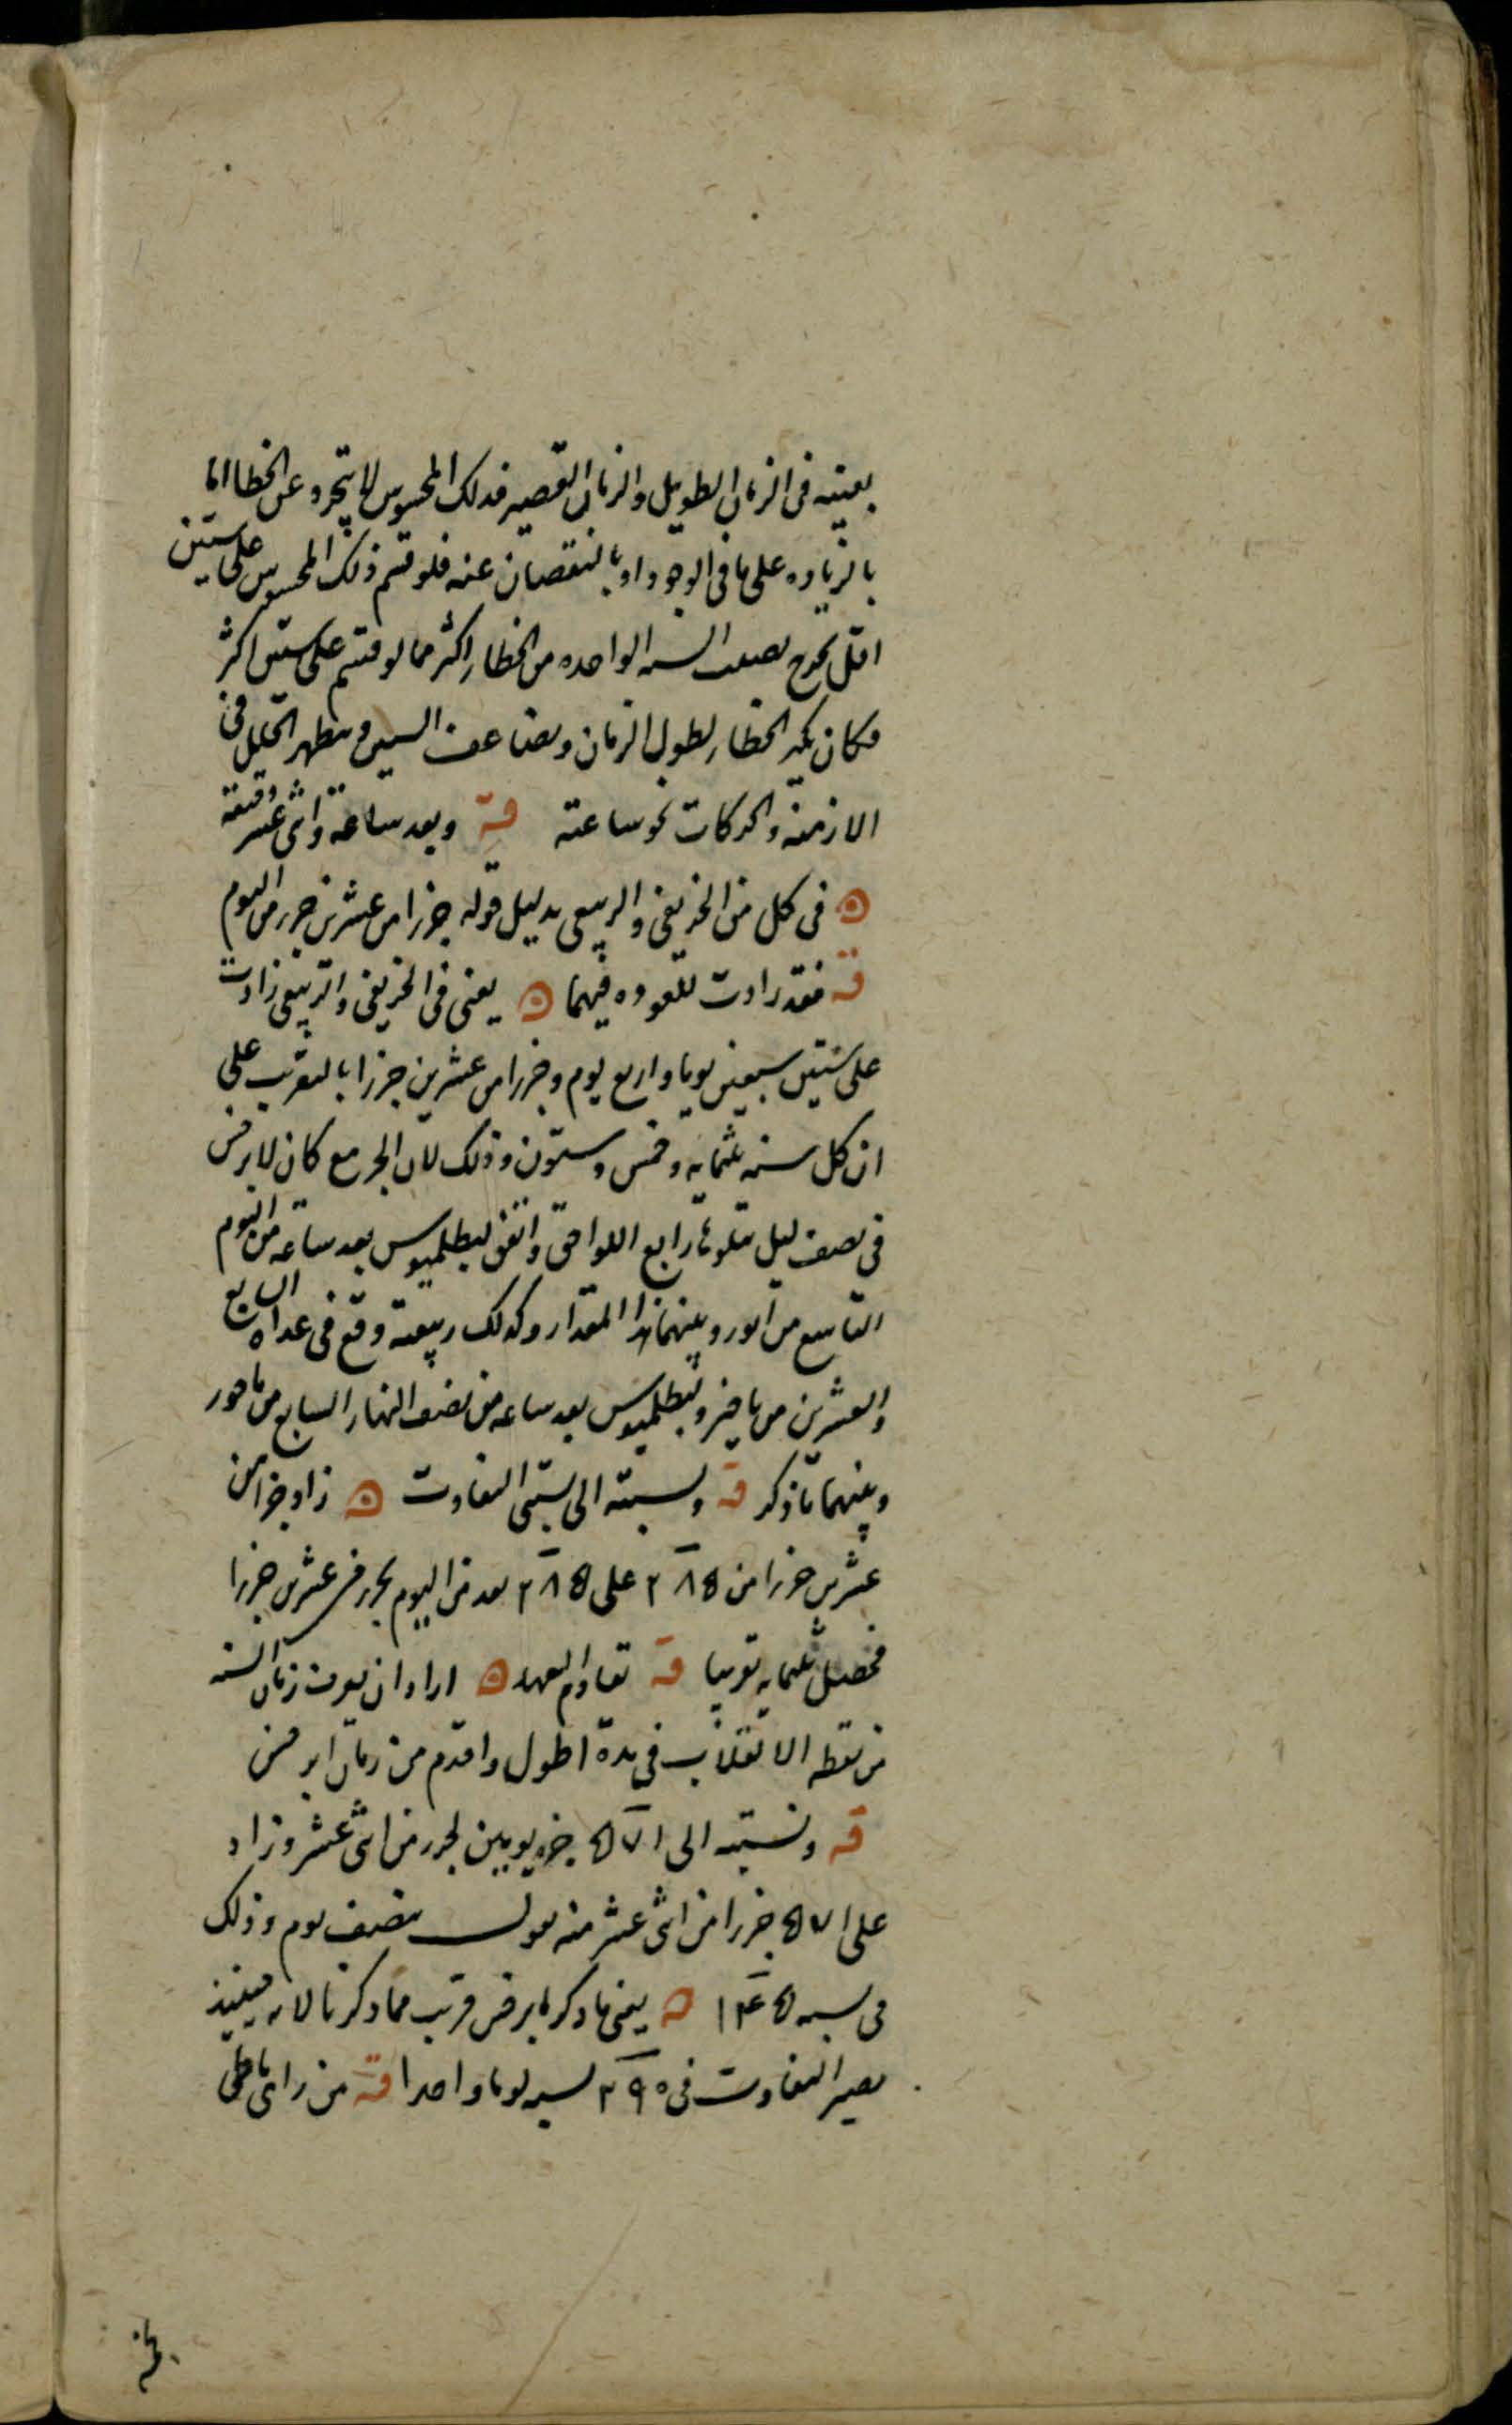 بعينه فى الزمان الطويل والزمان القصير فذلك المحسوس لا يتجرد عن الخطا اما
بالزياده على ما فى الوجود او بالنقصان عنه فلو قسم ذلك المحسوس على سنين
اقل يخرج نصيب السنه الواحده من الخطا اكثر مما لو قسم على سنين اكثر
فكان يكبر الخطا بطول الزمان وتضاعف السنين ويظهر الخلل فى
الازمنه والحركات نحو ساعته قه وبعد ساعة واثنى عشر دقيقة
ه فى كل من الخريفى والربيعى بدليل قوله جزا من عشرين جزء من اليوم
قه فقد زادت العوده فيهما ه يعنى فى الخريفى والربيعى زادت
على سنتين سبعين يوما وربع يوم وجزا من عشرين جزا بالتقريب على
ان كل سنه ثلثمايه وخمس وستون وذلك لان الجز مع كان لابرخس
فى نصف ليل يتلوها رابع اللواحق واتفق لبطلميوس بعد ساعه من اليوم
التاسع من اثور وبينهما هذا المقدار وكذلك ربيعيه وقع فى غداه السابع
والعشرين من ماخير ولبطلميوس بعد ساعه من نصف النهار السابع من باخور
وبينهما ما ذكر قه ونسبته الى سنى التفاوت ه زاد جزا من
عشرين جزا من ٢٨٥ على ٢٨٥ بعد من اليوم بجزء من عشرين جزا
فحصل ثلثمايه تقريبا قه تقادم العهد ه اراد ان يعرف زمان السنه
من نقطه الانقلاب فى مدة اطول واقدم من زمان ابرخس
قه ونسبته الى ٥٧١ جزء يومين بجزء من اثنى عشر وزاد
على ٥٧١ جزا من اثنى عشر منه نصف يوم وذلك
فى سنه ١٤٥ ه يعنى ما ذكره ابرخس قريب مما ذكرنا لانه حينئذ
يصير التفاوت فى ٢٩٥ سنه يوما واحدا قه من راى ماطن